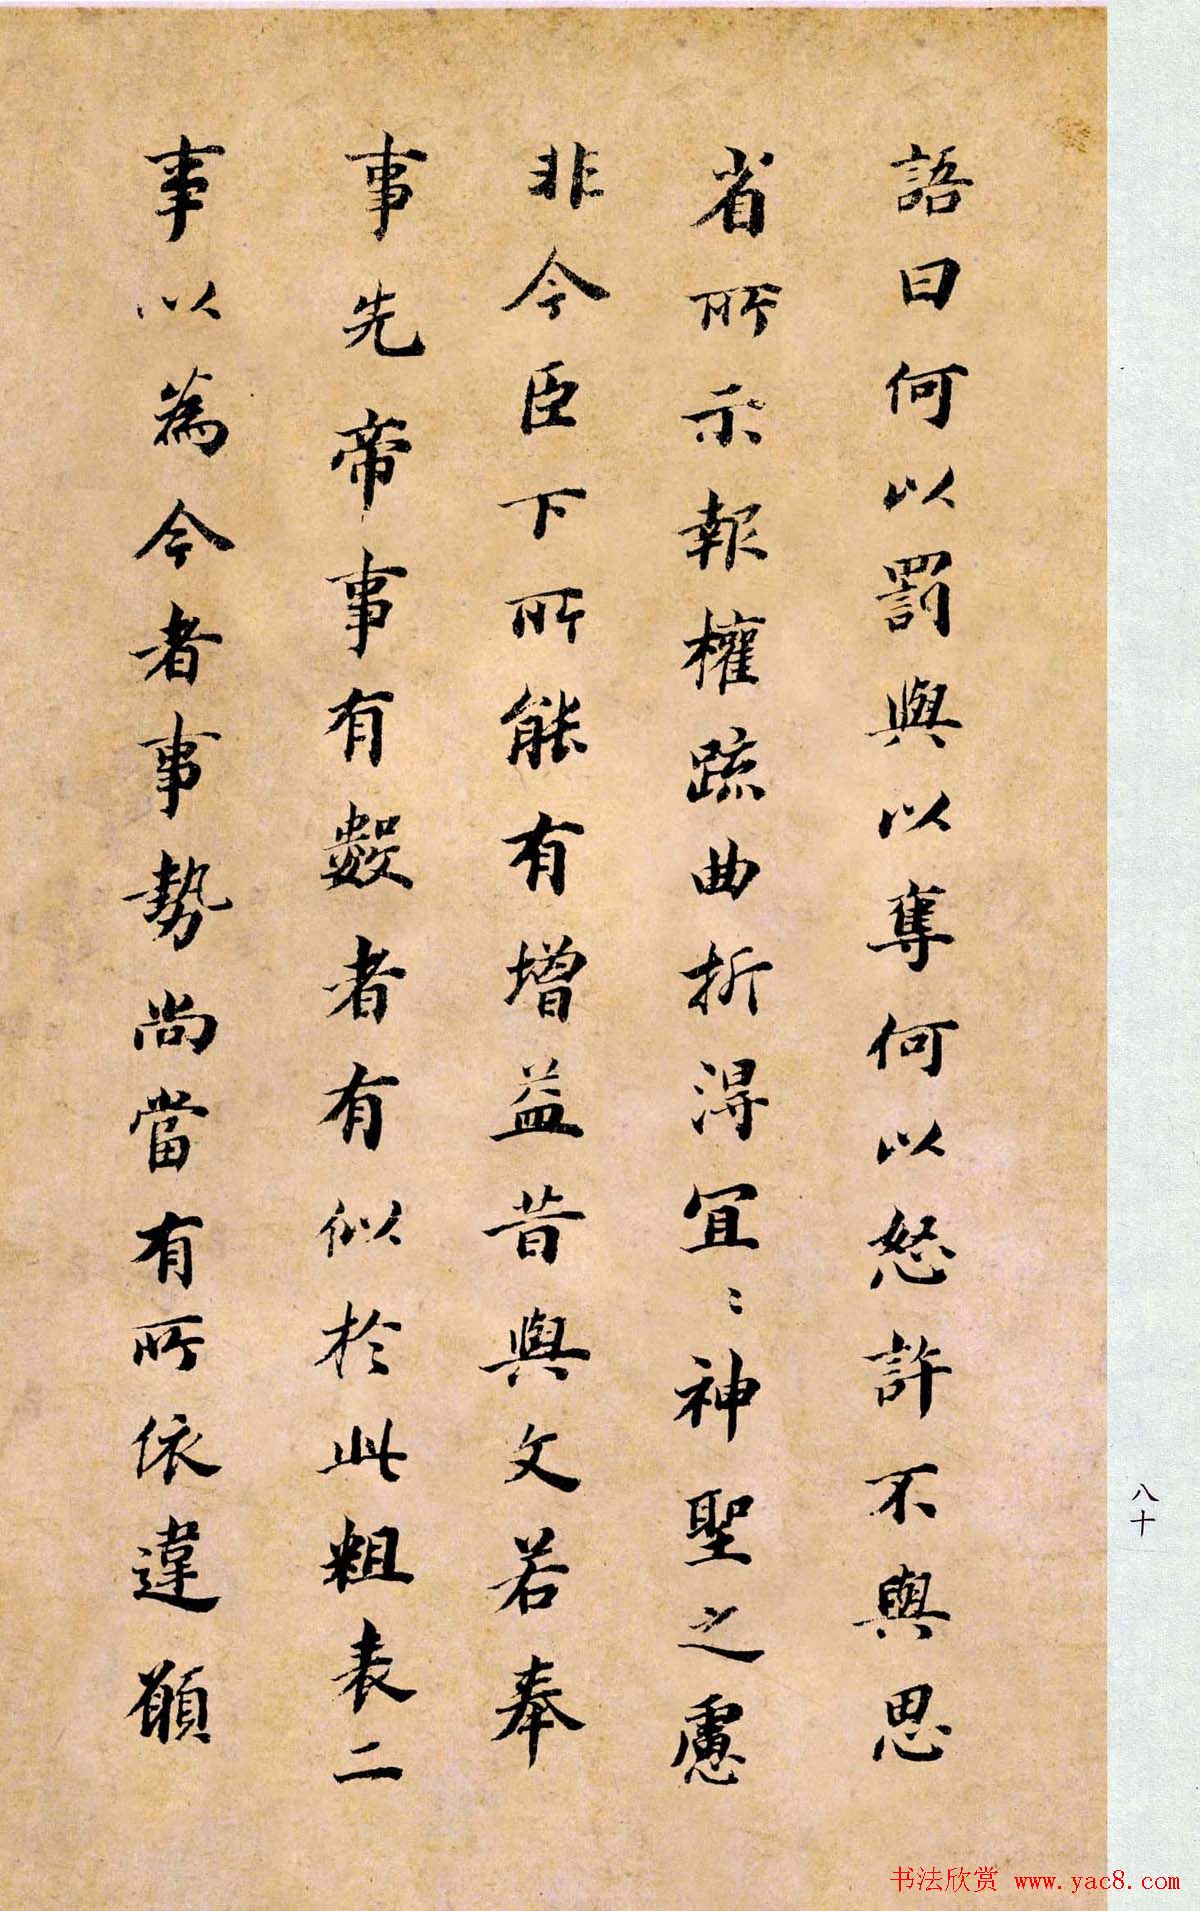 語曰何以罰與以奪何以怒許不與思
省所示報權疏曲折得宜〻神聖之慮
非今臣下所能有增益昔與文若奉
事先帝事有數者有似於此粗表二
事以為今者事勢尚當有所依違願
八十
书法欣赏 www.yac8.com